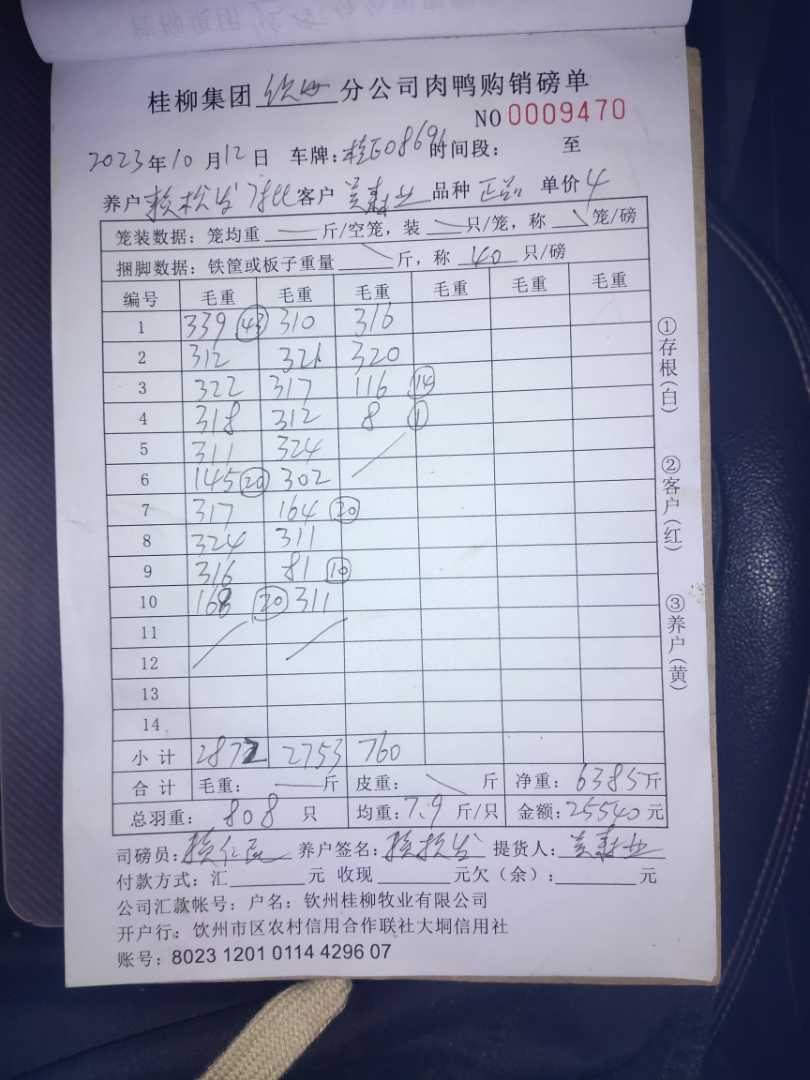 桂柳集团 钦州 分公司肉鸭购销磅单
NO 0009470
2023年10月12日 车牌:桂E08696 时间段: 至
养户 赖松发 客户 吴寿业 品种 正品 单价 4
笼装数据:笼均重 斤/空笼,装 只/笼,称 笼/磅
捆脚数据:铁筐或板子重量 斤,称 40 只/磅
编号 毛重 毛重 毛重 毛重 毛重 毛重
1 339 (43) 310 316
2 312 321 320
3 322 317 116 (14)
4 318 312 8 (1)
5 311 324
6 145 (20) 302
7 317 164 (20)
8 324 311
9 316 81 (10)
10 168 (20) 311
11
12
13
14
小计 2872 2753 760
合计 毛重: 斤 皮重: 斤 净重: 6385斤
总羽重: 808 只 均重:7.9 斤/只 金额:25540元
司磅员: 养户签名:赖松发 提货人:吴寿业
付款方式:汇 元 收现 元欠(余): 元
公司汇款帐号:户名:钦州桂柳牧业有限公司
开户行:钦州市区农村信用合作联社大垌信用社
账号:8023 1201 0114 4296 07
①存根(白)
②客户(红)
③养户(黄)